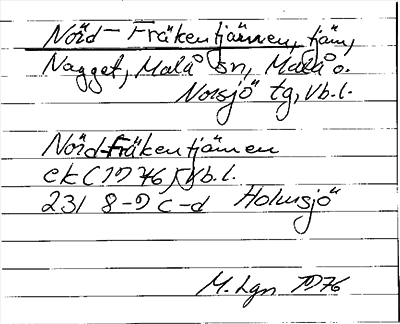 Nörd-Fräkentjärnen, tjärn,
Nagget, Malå sn, Malå o.
Norsjö tg, Vb.l.
Nörd-Fräkentjärnen
ek (1976) Vb.l.
231 8-9 c-d Holmsjö
M. Lgn 1976